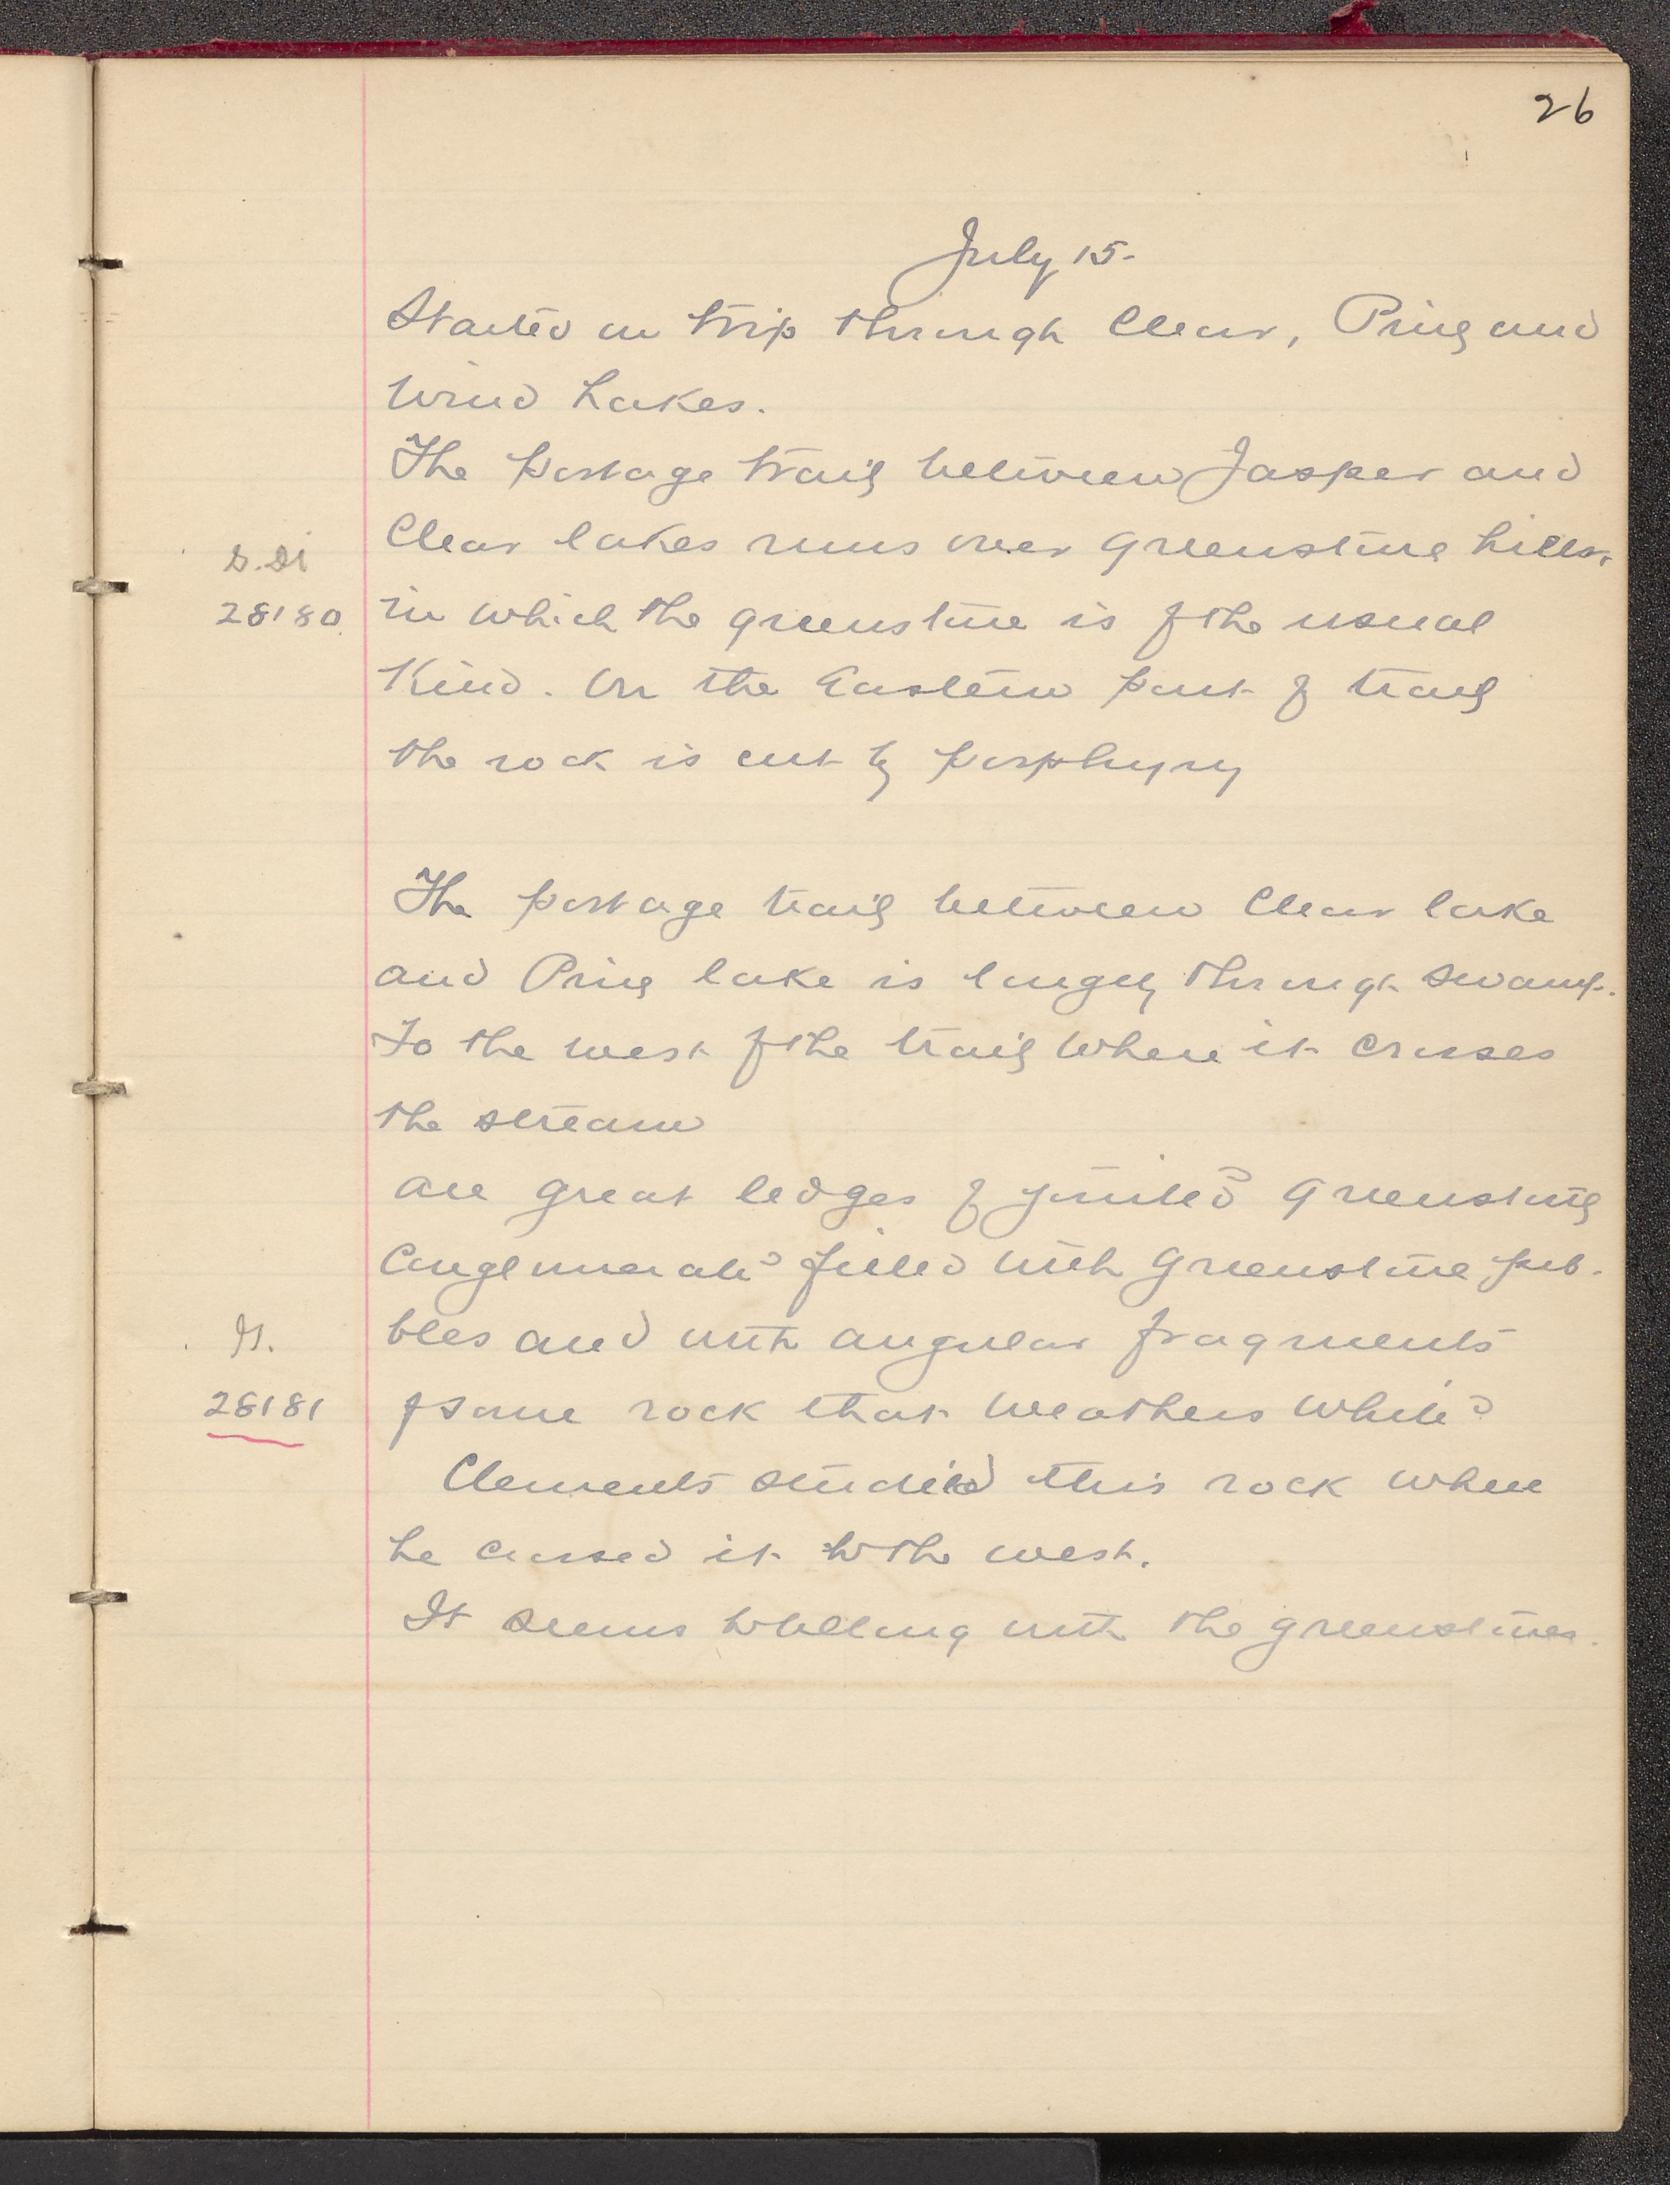 26
July 15.
Started on trip through Clear, Pine and
Wind Lakes.
The portage trail between Jasper and
Clear lakes runs over greenstone hills.
28180 in which the greenstone is of the usual
Kind. On the Eastern part of trail
the rock is cut by porphyry
The portage trail between Clear lake
and Pine lake is largely through swamp.
To the west of the trail where it crosses
the stream
are great ledges of jointed greenstone
Conglomerate filled with greenstone peb-
bles and with angular fragments
28181 of some rock that weathers white
Clements studied this rock where
he crossed it to the west.
It seems to belong with the greenstones.